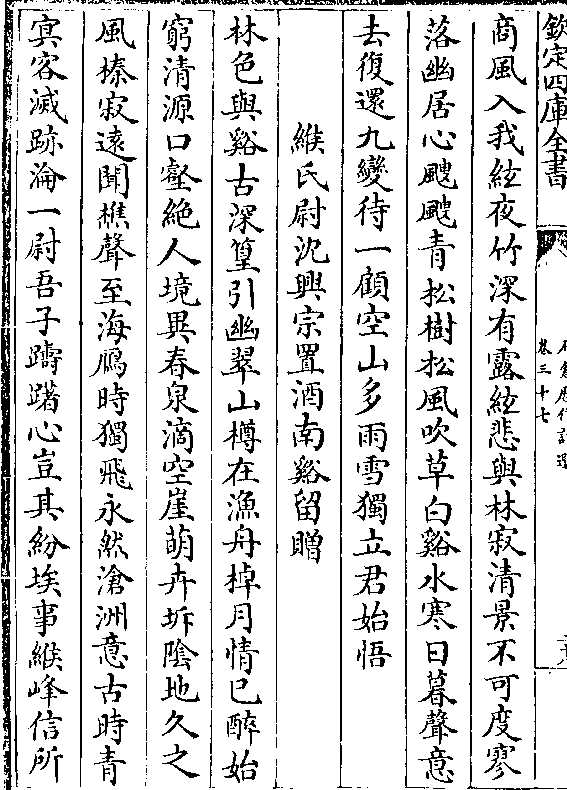 欽定四庫全書
卷三十七
商風入我絃夜竹深有露絃悲與林寂清景不可度寥
落幽居心颼颼青松樹松風吹草白谿水寒日暮聲意
去復還九變待一顧空山多雨雪獨立君始悟
緱氏尉沈興宗置酒南谿留贈
林色與谿古深篁引幽翠山樽在漁舟棹月情已醉始
窮清源口壑絶人境異春泉滴空崖萌卉坼陰地久之
風榛寂遠聞樵聲至海鴈時獨飛永然滄洲意古時青
冥客滅跡淪一尉吾子躊躇心豈其紛埃事緱峰信所